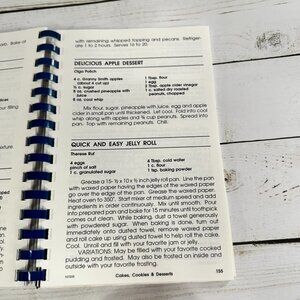 orb. Bake at
with remaining whipped topping and pecans. Refriger-
ate 1 to 2 hours. Serves 16 to 20.
DELICIOUS APPLE DESSERT
Olga Polich
4 c. Granny Smith apples
(about 4 cut up)
½ c. sugar
8 oz. crushed pineapple with
Juice
8 oz. cool whip
1 Tbsp. flour
1 egg
2 Tbsp. apple cider vinegar
1 c. salted dry roasted
peanuts, chopped
Mix flour, sugar, pineapple with juice, egg and apple
cider in small pan until thickened. Let cool. Fold into cool
whip along with apples and ½ cup peanuts. Spread into
pan. Top with remaining peanuts. Chill.
QUICK AND EASY JELLY ROLL
Therese Ruf
4 eggs
pinch of salt
1 c. granulated sugar
4 Tbsp. cold water
1 c. flour
1 tsp. baking powder
Grease a 15- ½ x 10 x ½ inch jelly roll pan. Line the pan
with waxed paper having the edges of the waxed paper
go over the edge of the pan. Grease the waxed paper.
Heat oven to 350°. Start mixer at medium speed and add
ingredients in order continuously. Mix until smooth. Pour
into prepared pan and bake for 15 minutes until toothpick
comes out clean. While baking, dust a towel generously
with powdered sugar. When baking is done, turn out
immediately onto dusted towel, remove waxed paper and
roll cake up using dusted towel to help roll the cake.
Cool. Unroll and fill with your favorite jam or jelly.
VARIATIONS: May be filled with your favorite cooked
pudding and frosted. May also be frosted on inside and
outside with your favorite frosting.
Cakes, Cookies & Desserts
155